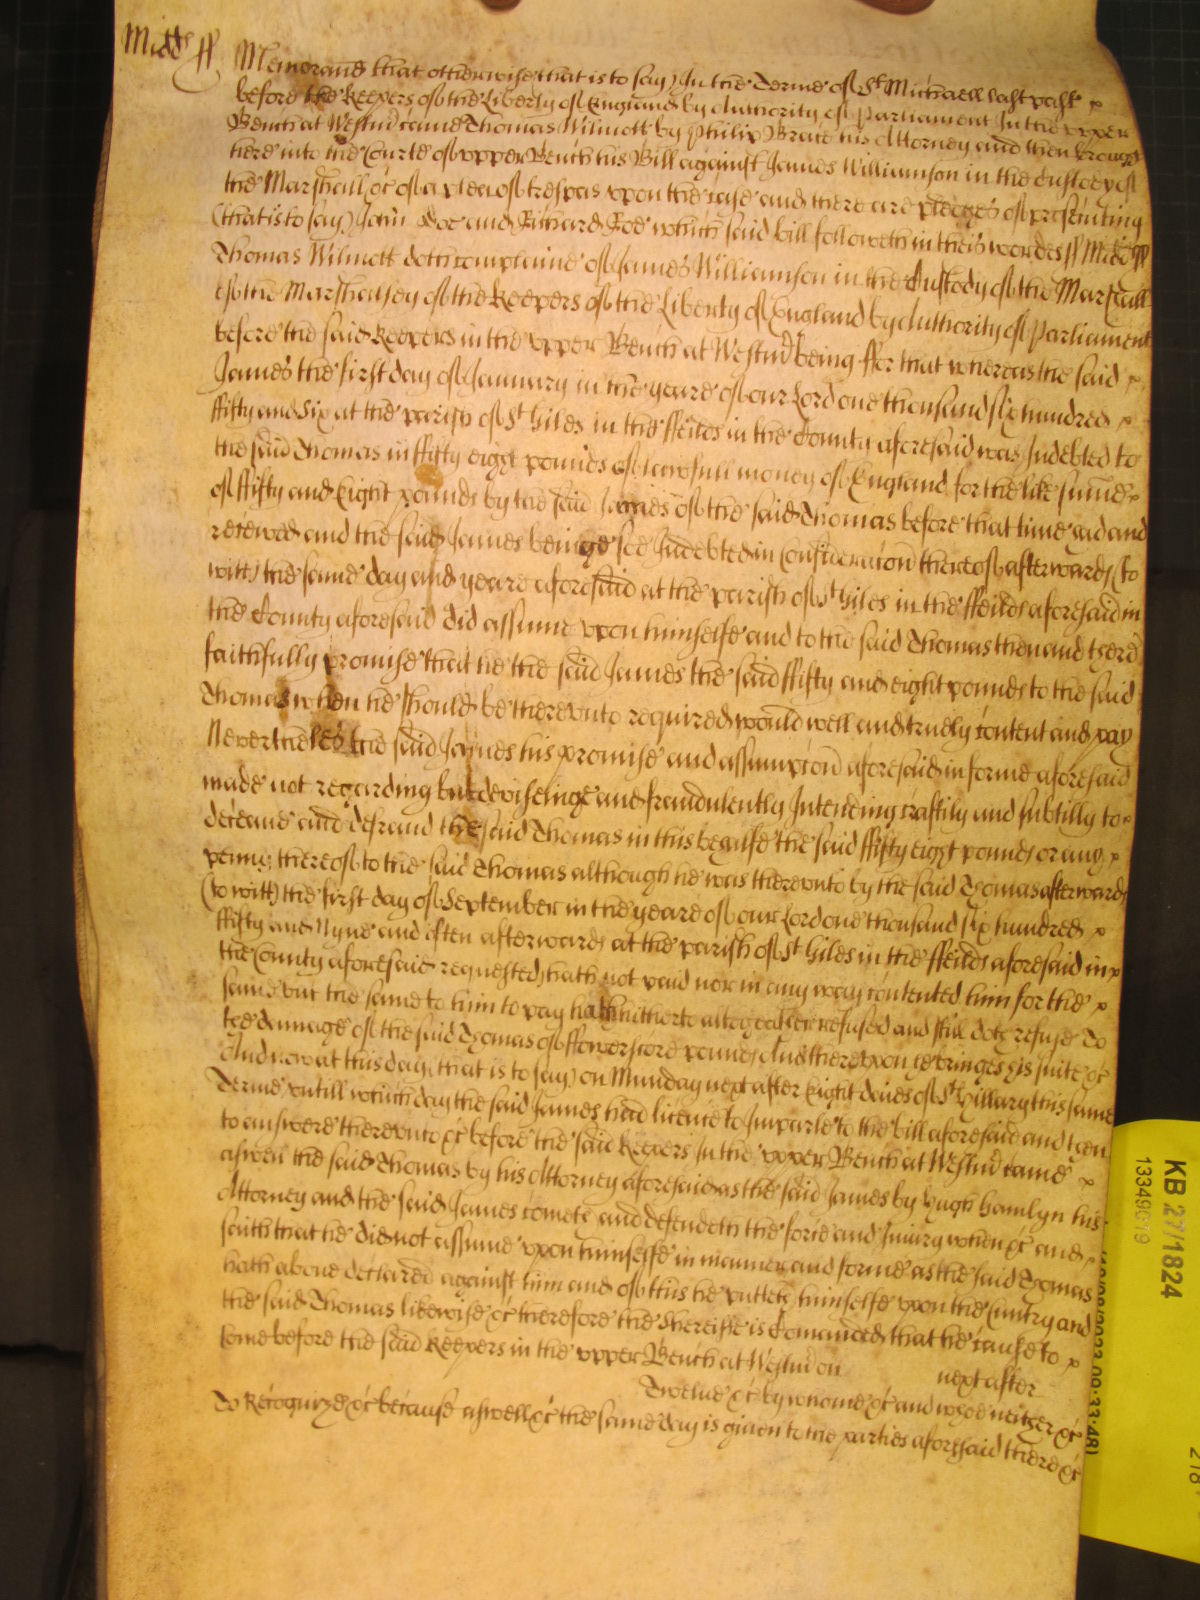 Midds ss Memorand that otherwise that is to say) In the Terme of St Michaell last past
before the Keepers of the Liberty of England by Authority of Parliament In the upper
Bench at Westmr came Thomas Wilmott by Philip Brace his Attorney and then brought
here into the Courte of upper Bench his Bill against James Williamson in the custody of
the Marshall &c of a plea of trespas upon the case and there are pledges of prosecuting
(that is to say) John Doe and Richard Roe which said bill followeth in theis wordes ss Midds ss
Thomas Wilmott doth complaine of James Williamson in the Custody of the Marshall
of the Marshalsey of the Keepers of the Liberty of England by Authority of Parliament
before the said Keepers in the upper Bench at Westmr being ffor that whereas the said
James the first day of January in the yeare of our Lord one thousand six hundred
ffifty and Six at the parish of St Giles in the ffeilds in the County aforesaid was Indebted to
the said Thomas in ffifty eight poundes of lawfull money of England for the like summe
of ffifty and Eight pounds by the said James of the said Thomas before that time had and
received and the said James beinge soe Indebted in Consideracion thereof afterwards (to
witt) the same day and yeare aforesaid at the parish of St Giles in the ffeilds aforesaid in
the County aforesaid did assume upon himselfe and to the said Thomas then and there
faithfully promise that he the said James the said ffifty and eight pounds to the said
Thomas when he should be thereunto required would well and truely content and pay
Neverthelės the said James his promise and assumpcion aforesaid in forme aforesaid
made not regarding but deviseinge and fraudulently Intending craftily and subtilly to
deceave and defraud the said Thomas in this behalfe the said ffifty eight pounds or any
penny thereof to the said Thomas although he was thereunto by the said Thomas afterwards
(to witt) the first day of September in the yeare of our Lord one thousand six hundred
ffifty and Nyne and often afterwards at the parish of St Giles in the ffeilds aforesaid in
the County aforesaid requested hath not paid nor in any way contented him for the
same but the same to him to pay hath hitherto altogeather refused and still doth refuse To
the damage of the said Thomas of ffower score pounds And thereupon he bringes his suite &c
And now at this day (that is to say) on Munday next after Eight daies of St Hillary this same
Terme untill which day the said James had licence to Imparle to the bill aforesaid and then
to answere thereunto &c before the said Keepers In the upper Bench at Westmr came
aswell the said Thomas by his Attorney aforesaid as the said James by Hugh Hamlyn his
Attorney and the said James cometh and defendeth the force and Iniury when &c and
saith that he did not assume upon himselfe in manner and forme as the said Thomas
hath above declared against him and of this he putteth himselfe upon the Cuntry and
the said Thomas likewise &c therefore the Sheriffe is Comanded that he cause to
come before the said Keepers in the upper Bench at Westmr on next after
Twelve &c by whome &c and whoe neither &c
To Recognize &c because aswell &c the same day is given to the parties aforesaid there &c
KB 27/1824